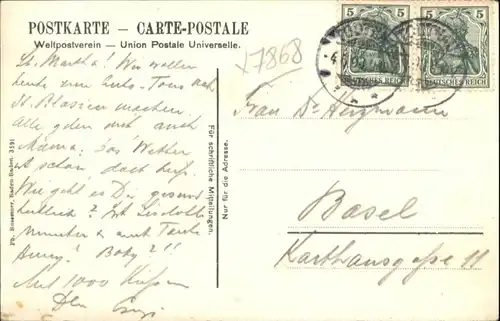 POSTKARTE – CARTE-POSTALE
Weltpostverein – Union Postale Universelle.
17868
5 5
5 5
DEUTSCHES REICH
DEUTSCHES REICH
L. Martha! Wir wollen
heute eine Auto-Tour nach
St. Blasien machen.
Alle gehen mit auch
Mama. Das Wetter
ist schön, doch heiß.
Wie geht es Dir gesund
heitlich? Ist Liselotte
munter & auch Tante
Baby?!!
Mit 1000 Küssen
Dein
Für schriftliche Mitteilungen.
Nur für die Adresse.
Ph. Bussemer, Baden-Baden. 3191
Frau Dr.
Basel
Karthausgasse 11